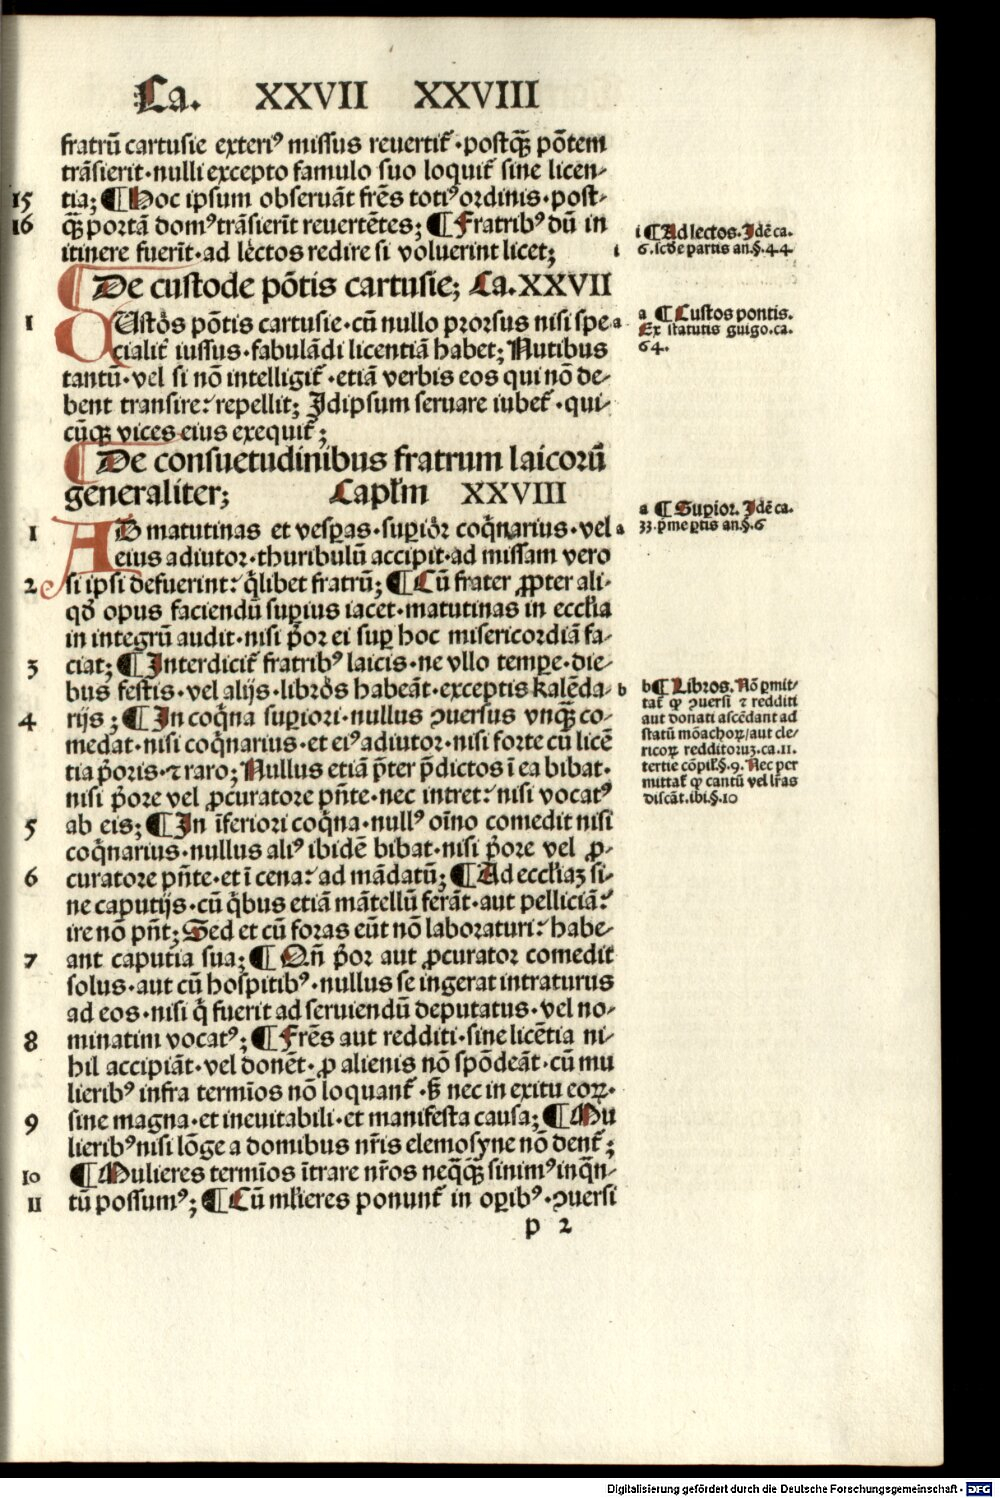 Ca. XXVII XXVIII
fratrū cartusie exteriꝰ missus reuertit᷑ · postqꝫ̄ pōtem
trāsierit · nulli excepto famulo suo loquit᷑ sine licen⸗
15 tia; ¶ Hoc ipsum obseruāt fr̄es totiꝰ ordinis · post⸗
16 qꝫ̄ portā domꝰ trāsierīt reuertētes; ¶ Fratribꝰ dū in
itinere fuerīt · ad lectos redire si voluerint licet; i
¶ De custode pōtis cartusie; Ca. XXVII
1 CUstos pōtis cartusie · cū nullo prorsus nisi spe a
cialit᷑ iussus · fabulādi licentiā habet; Nutibus
tantū · vel si nō intelligit᷑ · etiā verbis eos qui nō de⸗
bent transire: repellit; Idipsum seruare iubet᷑ · qui⸗
cūqꝫ vices eius exequit᷑;
¶ De consuetudinibus fratrum laicorū
generaliter; Capl̄m XXVIII
1 AD matutinas et vesꝑas · suꝑior coq̄narius · vel a
eius adiutor · thuribulū accipit · ad missam vero
2 si ipsi defuerint: q̄libet fratrū; ¶ Cū frater ꝓpter ali⸗
qd̓ opus faciendū suꝑius iacet · matutinas in eccl̄ia
in integrū audit · nisi p̓or ei suꝑ hoc misericordiā fa⸗
3 ciat; ¶ Interdicit᷑ fratribꝰ laicis · ne vllo temꝑe · die⸗
bus festis · vel alijs · libros habeāt · exceptis kalēda⸗ b
4 rijs; ¶ In coq̄na suꝑiori · nullus ꝯuersus vnqꝫ̄ co⸗
medat · nisi coq̄narius · et eiꝰ adiutor · nisi forte cū licē
tia p̓oris · ⁊ raro; Nullus etiā p̄ter p̄dictos ī ea bibat ·
nisi p̓ore vel ꝓcuratore pn̄te · nec intret: nisi vocatꝰ
5 ab eis; ¶ In īferiori coq̄na · nullꝰ oīno comedit nisi
coq̄narius · nullus aliꝰ ibidē bibat · nisi p̓ore vel ꝓ⸗
6 curatore pn̄te · et ī cena: ad mādatū; ¶ Ad eccl̄iaꝫ si⸗
ne caputijs · cū q̓bus etiā mātellū ferāt · aut pelliciā:
ire nō pn̄t; Sed et cū foras eūt nō laboraturi: habe⸗
7 ant caputia sua; ¶ Qn̄ p̓or aut ꝓcurator comedit
solus · aut cū hospitibꝰ · nullus se ingerat intraturus
ad eos · nisi q̓ fuerit ad seruiendū deputatus · vel no⸗
8 minatim vocatꝰ; ¶ Fr̄es aut redditi · sine licētia ni⸗
hil accipiāt · vel donēt · ꝓ alienis nō spōdeāt · cū mu
lieribꝰ infra termīos nō loquant᷑ · s̓ nec in exitu eoꝝ ·
9 sine magna · et ineuitabili · et manifesta causa; ¶ Mu
lieribꝰ nisi lōge a domibus nr̄is elemosyne nō dent᷑;
10 ¶ Mulieres termīos ītrare nr̄os neqꝫ̄qꝫ̄ sinimꝰ inq̄n⸗
11 tū possumꝰ; ¶ Cū ml̓ieres ponunt᷑ in oꝑibꝰ · ꝯuersi
p 2
i ¶ Ad lectos. Idē ca.
6. scd̓e partis an. §. 44.
a ¶ Custos pontis.
Ex statutis guigo. ca.
64.
a ¶ Suꝑior. Idē ca.
33. p̄me ꝑtis an. §. 6
b ¶ Libros. Nō ꝑmit⸗
tat᷑ qꝙ ꝯuersi ⁊ redditi
aut donati ascēdant ad
statū mōachoꝝ / aut cle⸗
ricoꝝ redditoruꝫ. ca. 11.
tertie cōpil᷑. §. 9. Nec per
mittat᷑ qꝙ cantū vel lr̄as
discāt. ibi. §. 10
Digitalisierung gefördert durch die Deutsche Forschungsgemeinschaft - DFG